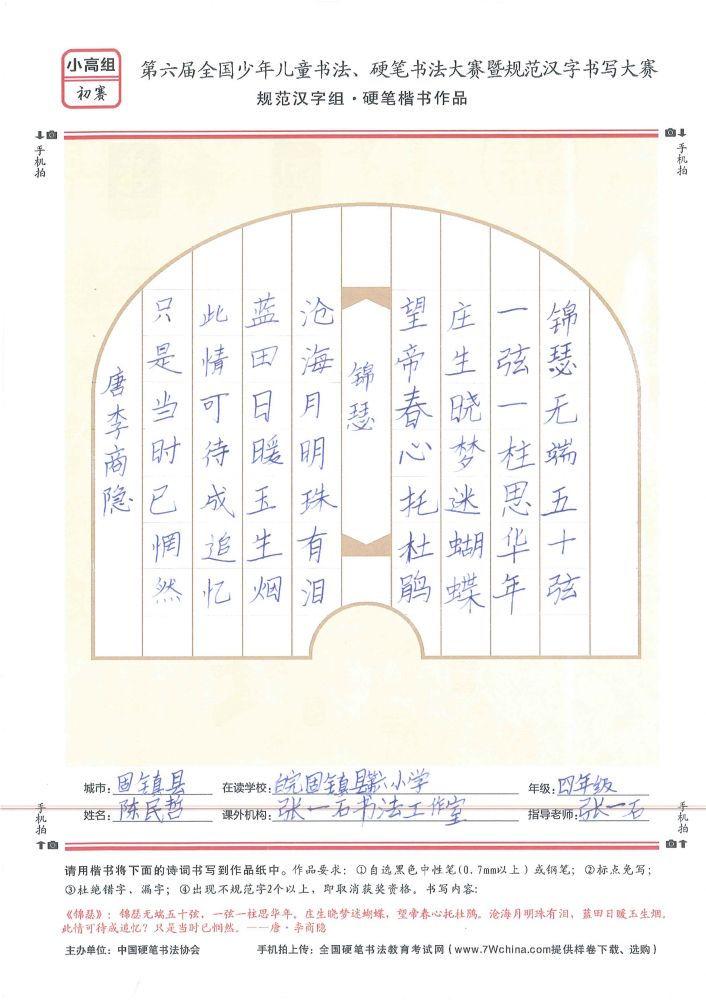 小高组
初赛
第六届全国少年儿童书法、硬笔书法大赛暨规范汉字书写大赛
规范汉字组·硬笔楷书作品
手机拍
手机拍
锦瑟无端五十弦
一弦一柱思华年
庄生晓梦迷蝴蝶
望帝春心托杜鹃
锦瑟
沧海月明珠有泪
蓝田日暖玉生烟
此情可待成追忆
只是当时已惘然
唐李商隐
城市：固镇县 在读学校：皖固镇县第六小学 年级：四年级
姓名：陈民哲 课外机构：张一石书法工作室 指导老师：张一石
手机拍
手机拍
请用楷书将下面的诗词书写到作品纸中。作品要求：①自选黑色中性笔(0.7mm以上)或钢笔；②标点免写；
③杜绝错字、漏字；④出现不规范字2个以上，即取消获奖资格。书写内容：
《锦瑟》：锦瑟无端五十弦，一弦一柱思华年。庄生晓梦迷蝴蝶，望帝春心托杜鹃。沧海月明珠有泪，蓝田日暖玉生烟。
此情可待成追忆？只是当时已惘然。——唐·李商隐
主办单位：中国硬笔书法协会 手机拍上传：全国硬笔书法教育考试网（www.7Wchina.com提供样卷下载、选购）